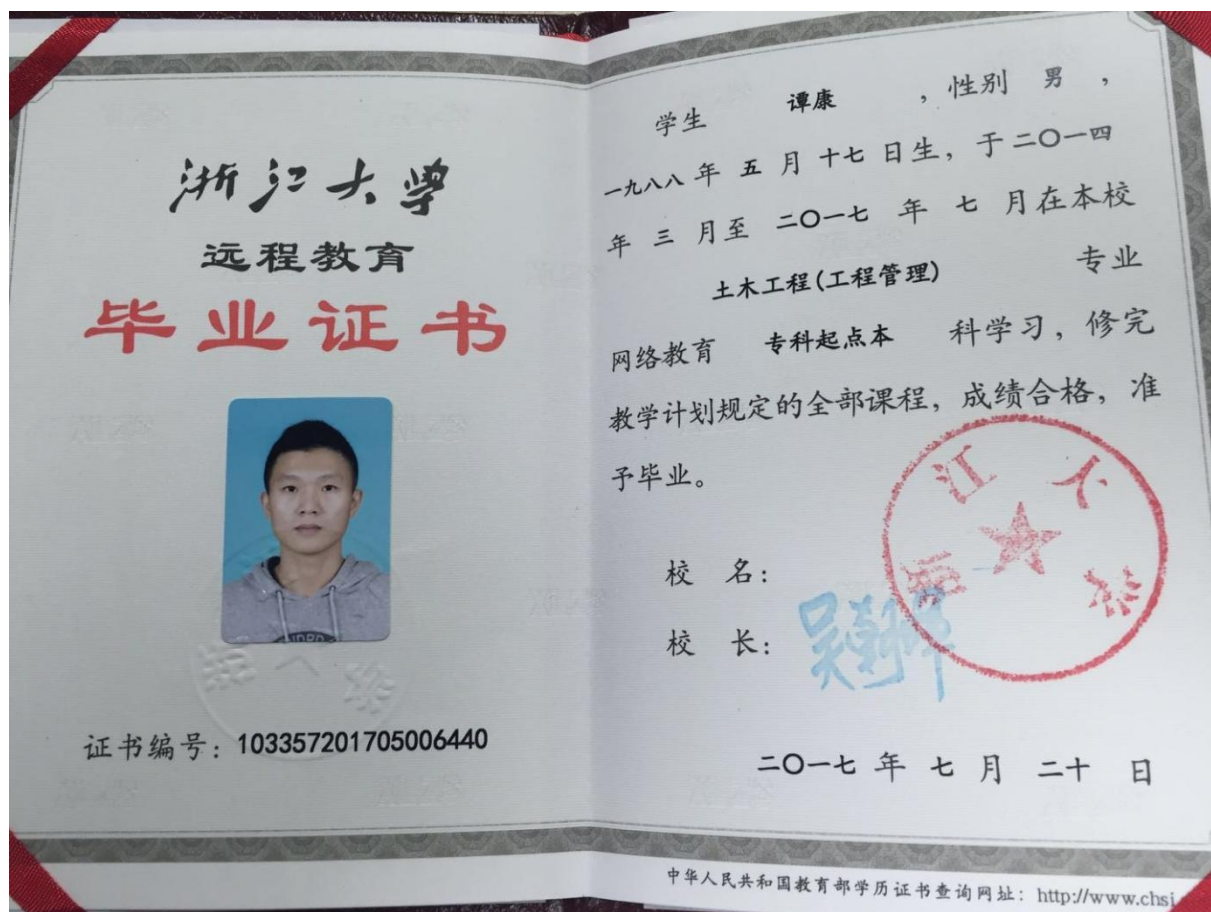 浙江大学
远程教育
毕业证书
证书编号：103357201705006440
学生 谭康 ，性别 男 ，
一九八八 年 五 月 十七 日生，于二〇一四
年 三 月至 二〇一七 年 七 月在本校
土木工程(工程管理) 专业
网络教育 专科起点本 科学习，修完
教学计划规定的全部课程，成绩合格，准
予毕业。
校 名：
校 长：吴朝晖
浙江大学
二〇一七 年 七 月 二十 日
中华人民共和国教育部学历证书查询网址：http://www.chsi